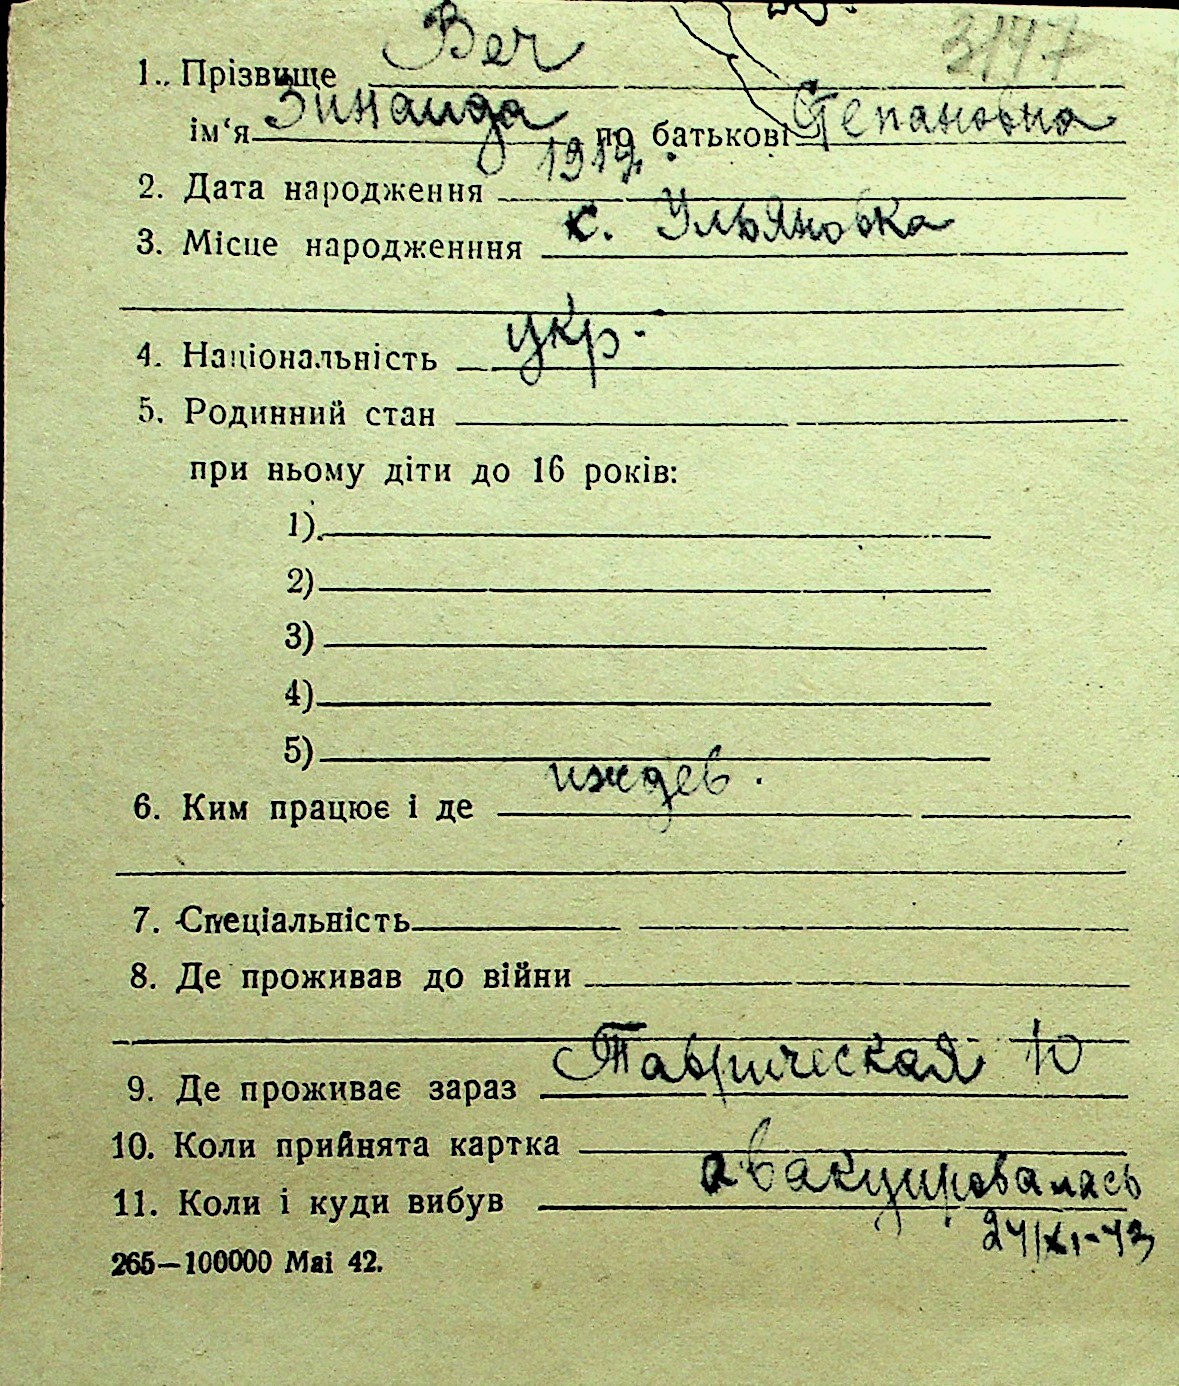 3147
1. Прізвище Веч
ім‘я Зинаида по батькові Степановна
2. Дата народження
3. Місце народженння с. Ульяновка
4. Національність укр.
5. Родинний стан
при ньому діти до 16 років:
1)
2)
3)
4)
5)
6. Ким працює і де иждев.
7. Спеціальність
8. Де проживав до війни
9. Де проживає зараз Таврическая 10
10. Коли прийнята картка
11. Коли і куди вибув авакуировалась
24/XI-43
265—100000 Mai 42.